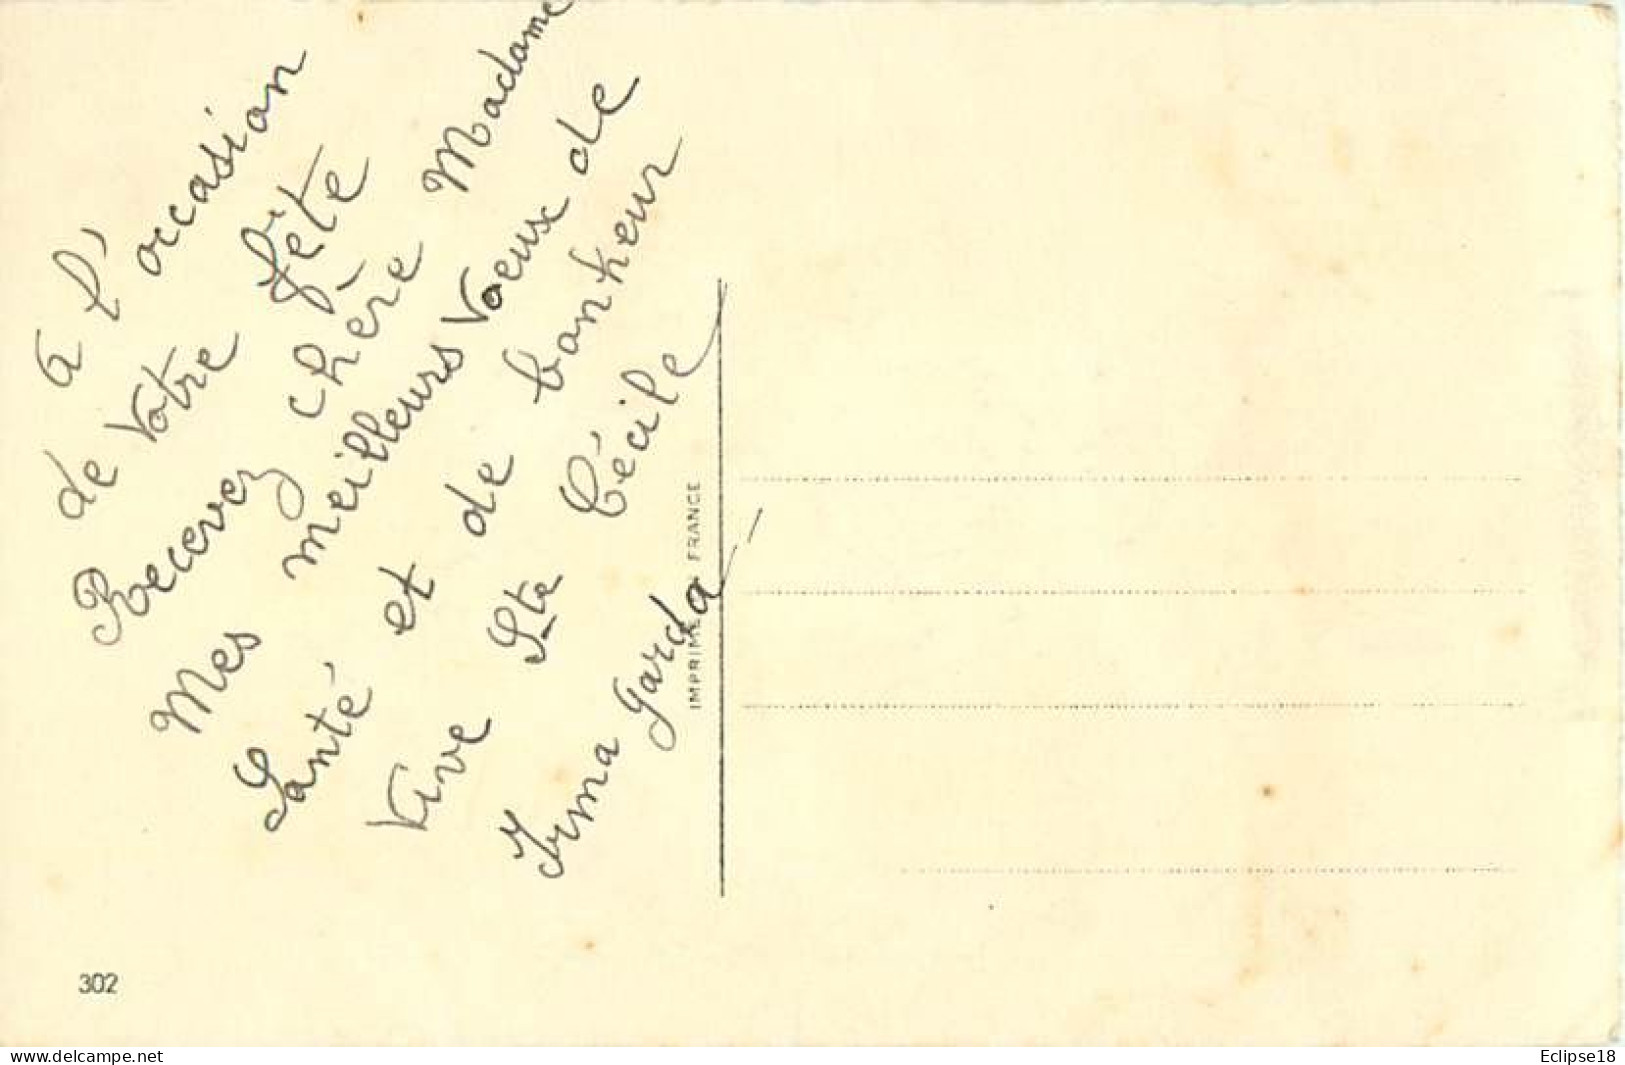 à l'occasion
de votre fête
Recevez chère Madame
Mes meilleurs Voeux de
Santé et de bonheur
Vive Ste Cécile
Irma Garda
IMPRIMÉ FRANCE
302
www.delcampe.net
Eclipse18